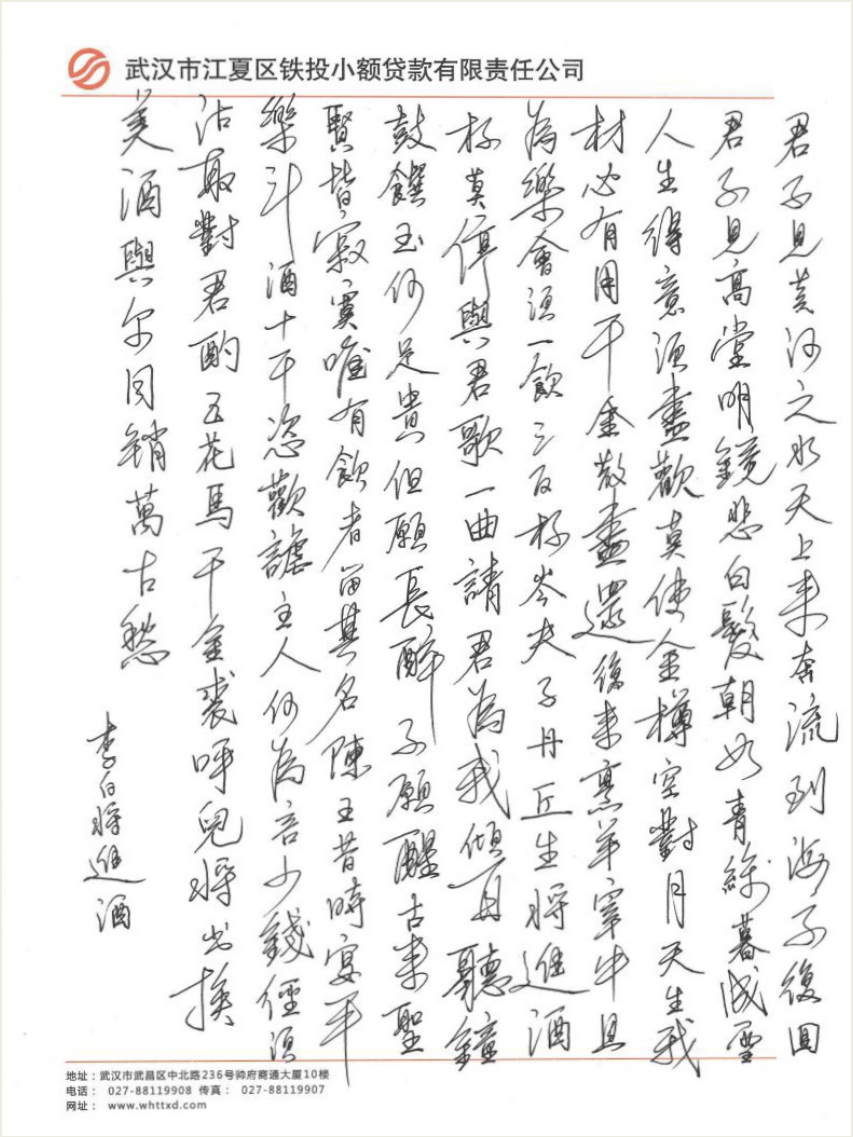 武汉市江夏区铁投小额贷款有限责任公司
君不見黃河之水天上来奔流到海不復回
君不見高堂明鏡悲白髮朝如青絲暮成雪
人生得意須盡歡莫使金樽空對月天生我
材必有用千金散盡還復来烹羊宰牛且
為樂會須一飲三百杯岑夫子丹丘生将進酒
杯莫停與君歌一曲請君為我傾耳聽鐘
鼓饌玉何足貴但願長醉不願醒古来聖
賢皆寂寞唯有飲者留其名陳王昔時宴平
樂斗酒十千恣歡謔主人何為言少錢徑須
沽取對君酌五花馬千金裘呼兒将出換
美酒與尔同銷萬古愁
李白将進酒
地址：武汉市武昌区中北路236号帅府商通大厦10楼
电话： 027-88119908 传真： 027-88119907
网址： www.whttxd.com